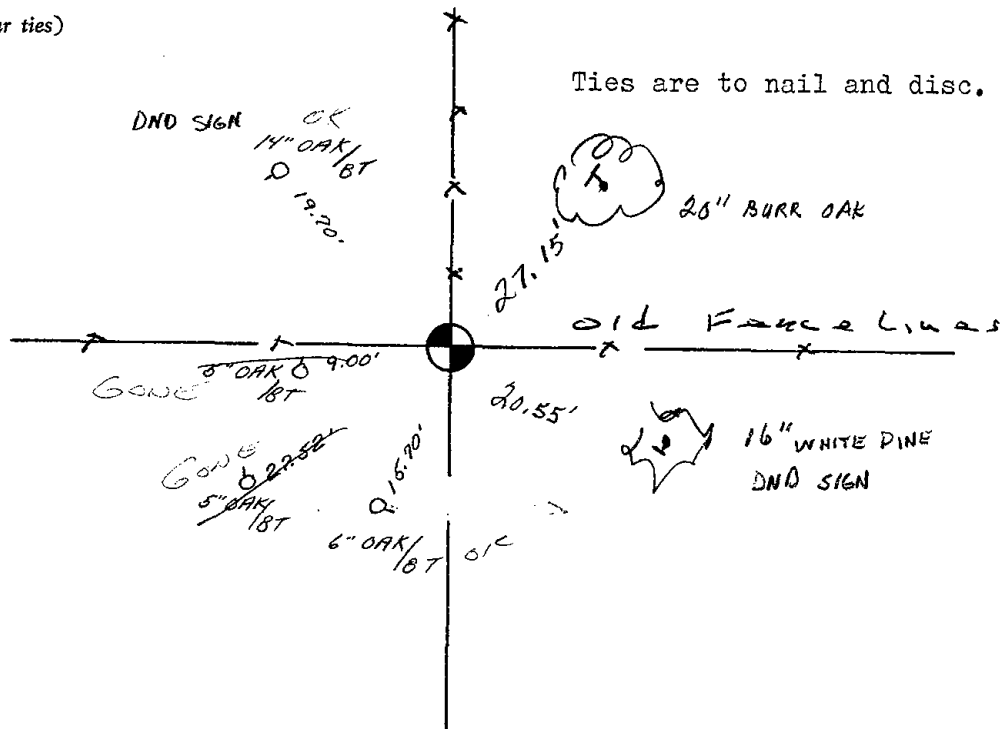 r ties)
Ties are to nail and disc.
DND SIGN
OK
14" OAK/BT
19.70'
27.15'
20" BURR OAK
Old Fence Lines
GONE
OAK/BT
9.00'
20.55'
16" WHITE PINE
DND SIGN
GONE
27.52'
5" OAK/BT
15.70'
6" OAK/BT
OK